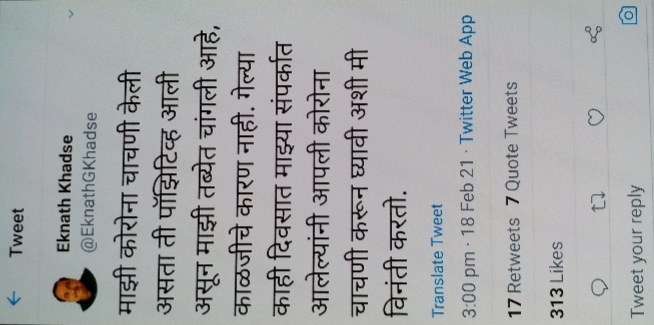 Tweet
Eknath Khadse
@EknathGKhadse
माझी कोरोना चाचणी केली
असता ती पॉझिटिव्ह आली
असून माझी तब्येत चांगली आहे,
काळजीचे कारण नाही. गेल्या
काही दिवसात माझ्या संपर्कात
आलेल्यांनी आपली कोरोना
चाचणी करून घ्यावी अशी मी
विनंती करतो.
Translate Tweet
3:00 pm · 18 Feb 21 · Twitter Web App
17 Retweets 7 Quote Tweets
313 Likes
Tweet your reply